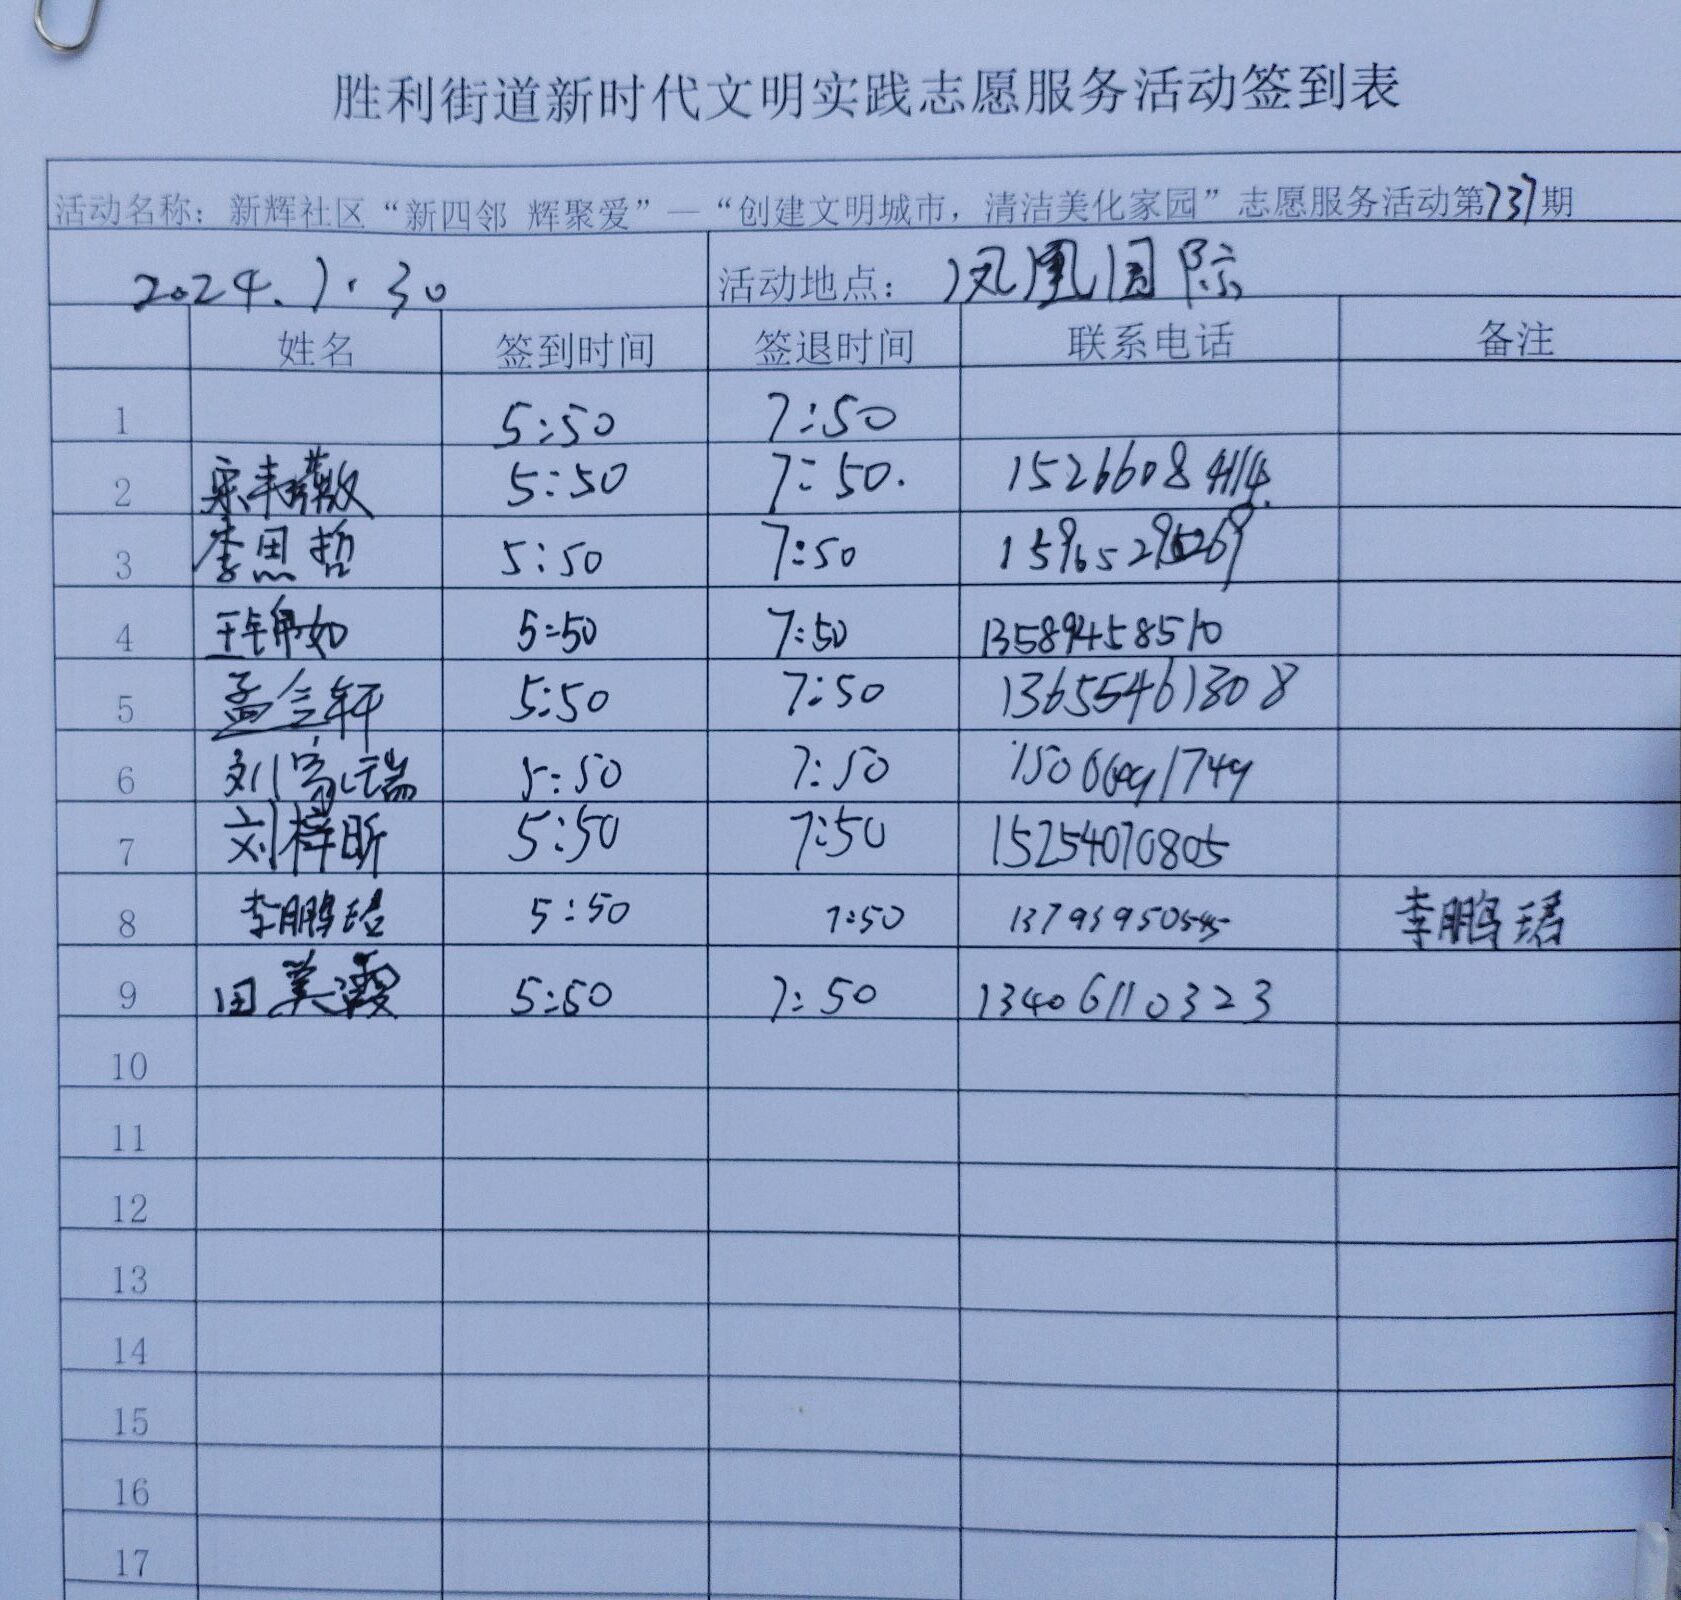 胜利街道新时代文明实践志愿服务活动签到表
活动名称：新辉社区“新四邻 辉聚爱”—“创建文明城市，清洁美化家园”志愿服务活动第737期
2024.7.30 活动地点：凤凰国际
姓名 签到时间 签退时间 联系电话 备注
1 5:50 7:50
2 5:50 7:50. 15266084114
3 李思哲 5:50 7:50
4 王锦如 5:50 7:50 13589458510
5 孟令轩 5:50 7:50 13655461308
6 刘 瑞 5:50 7:50
7 刘梓昕 5:50 7:50 15254070805
8 李鹏珺 5:50 7:50 李鹏珺
9 田美霞 5:50 7:50 13406110323
10
11
12
13
14
15
16
17